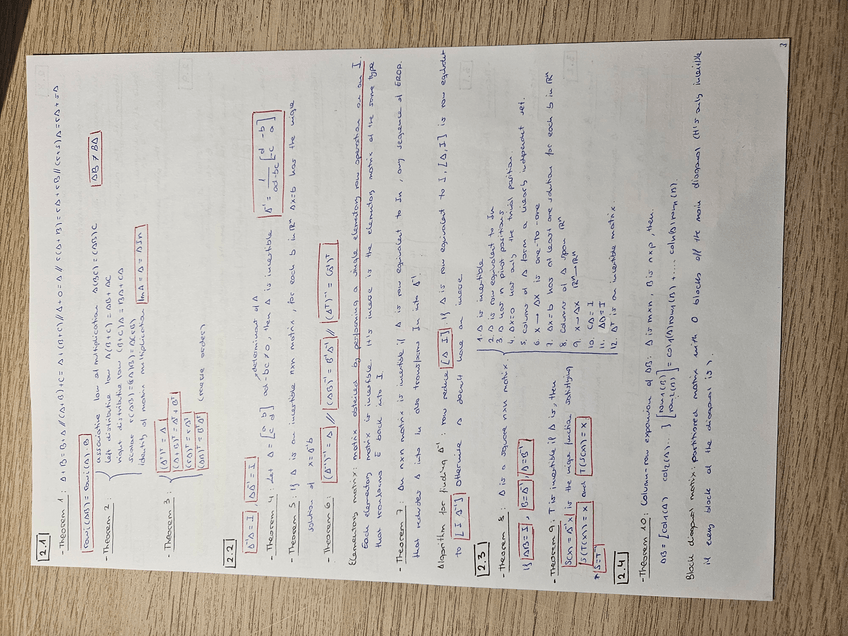 2.1
- Theorem 1: A+B=B+A // (A+B)+C = A+(B+C) // A+0=A // r(A+B)=rA+rB // (r+s)A=rA+sA
rowi(AB) = rowi(A)·B
AB ≠ BA
- Theorem 2:
associative law of multiplication A(BC)=(AB)C
left distributive law A(B+C) = AB+AC
right distributive law (B+C)A = BA+CA
scalar r(AB)=(rA)B=A(rB)
identity of matrix multiplication ImA = A = AIn
- Theorem 3:
(Aᵀ)ᵀ = A
(A+B)ᵀ = Aᵀ+Bᵀ
(rA)ᵀ = rAᵀ
(AB)ᵀ = BᵀAᵀ (reverse order)
2.2
A⁻¹A = I, AA⁻¹ = I
determinant of A
- Theorem 4: Let A = [a b; c d] ad-bc ≠ 0, then A is invertible A⁻¹ = 1/(ad-bc) [d -b; -c a]
- Theorem 5: If A is an invertible nxn matrix, for each b in ℝⁿ Ax=b has the unique
solution of x=A⁻¹b
- Theorem 6: (A⁻¹)⁻¹ = A // (AB)⁻¹ = B⁻¹A⁻¹ // (Aᵀ)⁻¹ = (A⁻¹)ᵀ
Elementary matrix: matrix obtained by performing a single elementary row operation on an I
Each elementary matrix is invertible. It's inverse is the elementary matrix of the same type
that transforms E back into I
- Theorem 7: An nxn matrix is invertible if A is row equivalent to In, any sequence of EROP
that reduces A into In also transforms In into A⁻¹
Algorithm for finding A⁻¹: row reduce [A I] If A is row equivalent to I, [A, I] is row equivalent
to [I A⁻¹] otherwise A doesn't have an inverse
2.3
- Theorem 8: A is a square nxn matrix:
1. A is invertible
2. A is row equivalent to In
3. A has n pivot positions
4. Ax=0 has only the trivial position
5. Columns of A form a linearly independent set.
6. x→Ax is one-to-one
7. Ax=b has at least one solution for each b in ℝⁿ
8. Columns of A span ℝⁿ
9. x→Ax ℝⁿ→ℝⁿ
10. CA=I
11. AD=I
12. Aᵀ is an invertible matrix
If AB=I, B=A⁻¹, A=B⁻¹
- Theorem 9: T is invertible if A is, then
S(x)=A⁻¹x is the unique function satisfying
S(T(x)) = x and T(S(x)) = x
2.4
- Theorem 10: Column-row expansion of AB: A is mxn, B is nxp, then
AB = [col1(A) col2(A) ...] [row1(B); row2(B)] = col1(A)row1(B)+... coln(A)rown(B)
Block diagonal matrix: partitioned matrix with 0 blocks off the main diagonal (It's only invertible
if every block of the diagonal is).
3